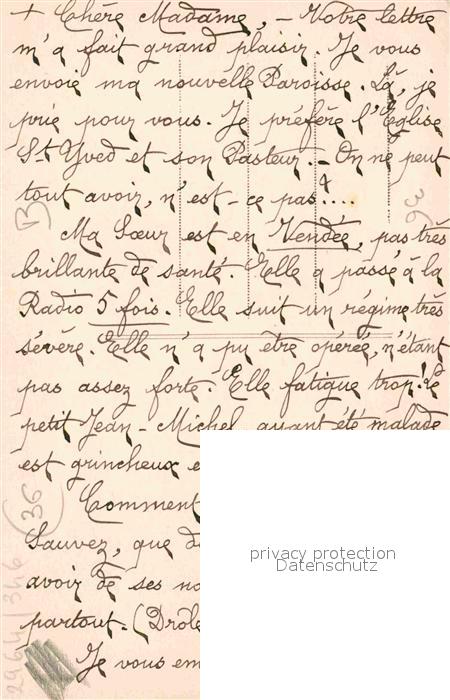 + Chère Madame, – Votre lettre
m'a fait grand plaisir. Je vous
envoie ma nouvelle Paroisse. Là, je
prie pour vous. Je préfère l'Eglise
St Yved et son Pasteur. – On ne peut
tout avoir, n'est-ce pas ?....
Ma Sœur est en Vendée, pas très
brillante de santé. Elle a passé à la
Radio 5 fois. Elle suit un régime très
sévère. Elle n'a pu être opérée, n'étant
pas assez forte. Elle fatigue trop! Le
petit Jean-Michel, ayant été malade
est grincheux e
Comment
Sauvez, que d
avoir de ses no
partout. (Drôle
Je vous em
privacy protection
Datenschutz
2964/346
36
B